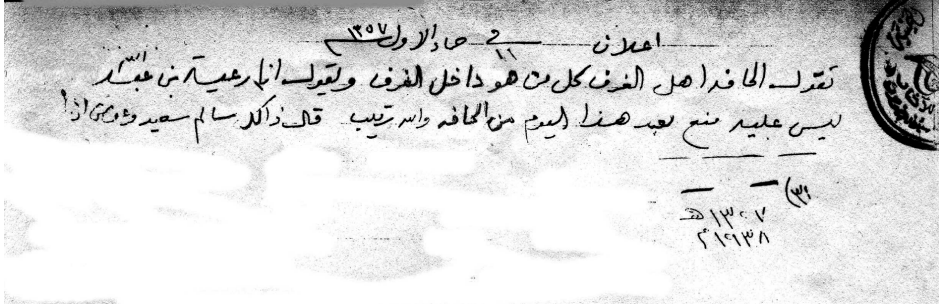 اعلان في ١١ جماد الاول ١٣٥٧
تقول الحافه اهل الغرف كل من هو داخل الغرف ويقول انا رعية بن عبدالله
ليس عليه منع بعد هذا اليوم من الحافه والله رقيب قال ذاكر سالم سعيد
(٣)
١٣٥٧ هـ
١٩٣٨ م